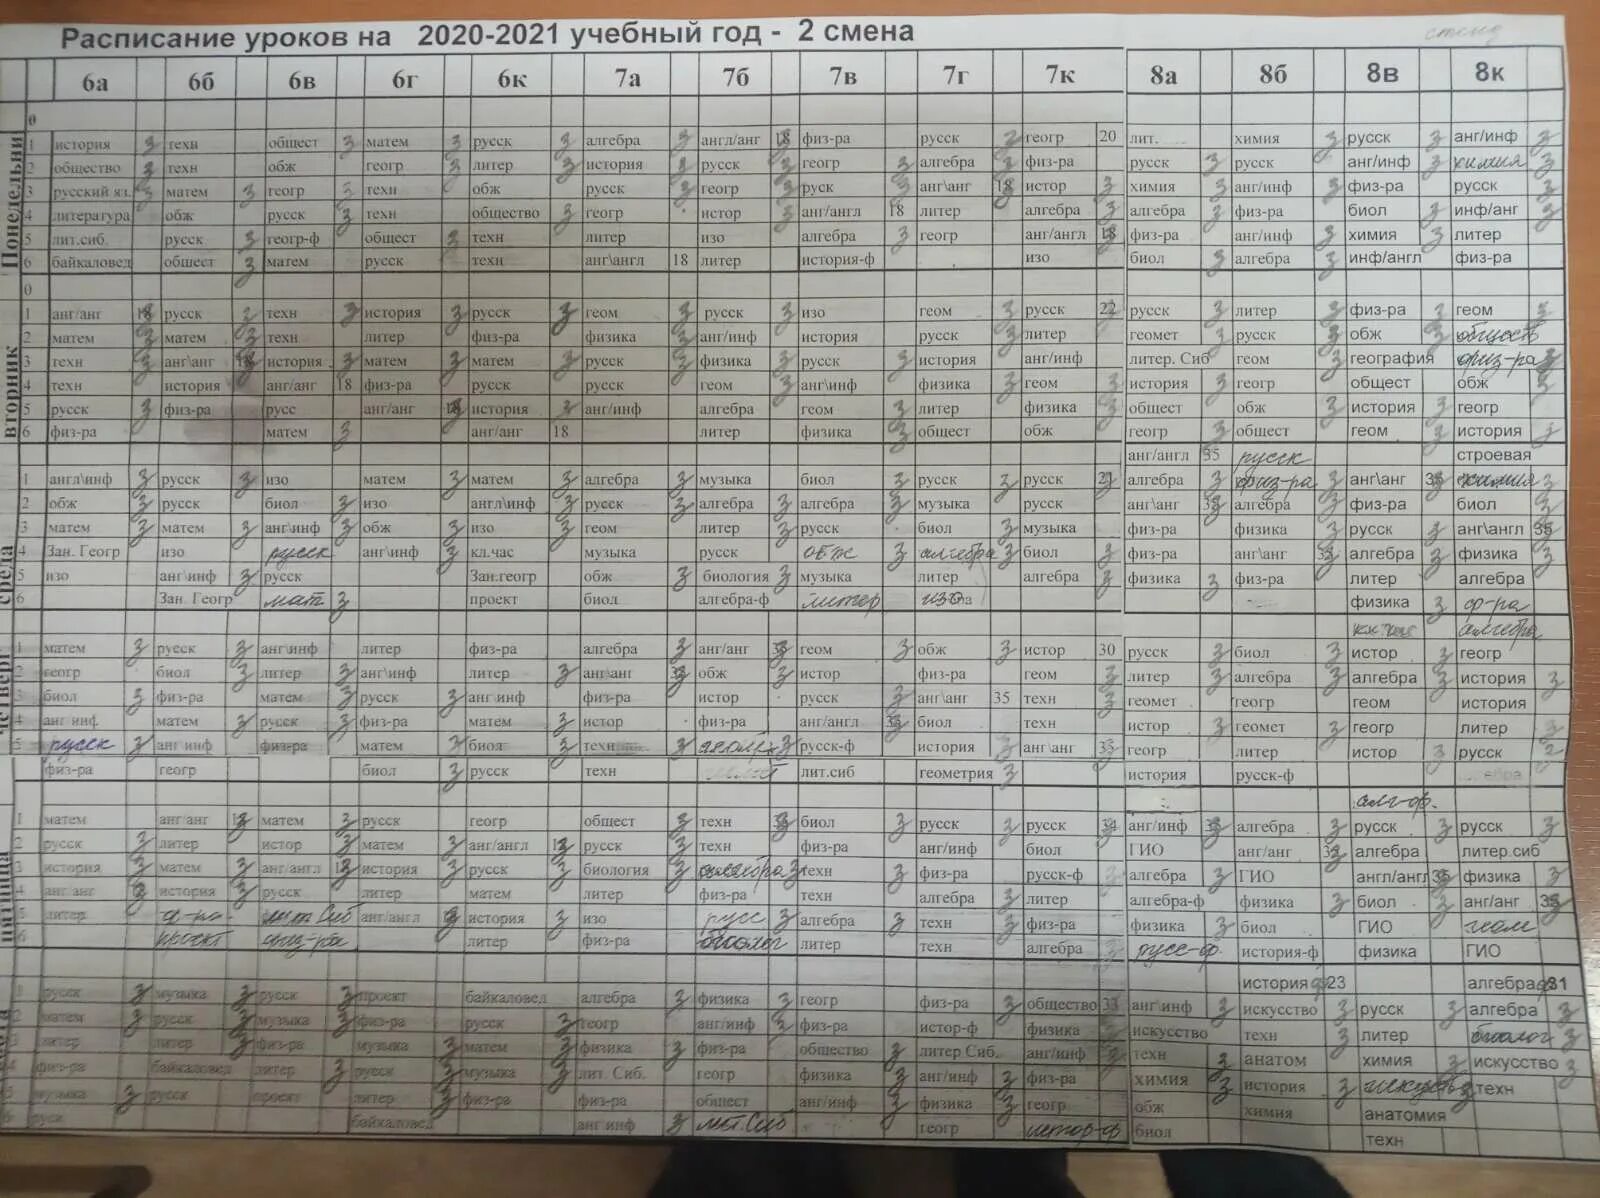 Расписание уроков на 2020-2021 учебный год - 2 смена
6а 6б 6в 6г 6к 7а 7б 7в 7г 7к 8а 8б 8в 8к
0
Понедельни
1 история З техн общест З матем З русск З алгебра З англ/анг 18 физ-ра русск З геогр 20 лит. химия З русск З анг/инф З
2 общество З техн обж геогр З литер З история З русск З геогр З алгебра З физ-ра русск З русск анг/инф З химия З
3 русский яз. З матем З геогр З техн обж русск З геогр З руск З анг\анг 18 истор З химия З анг/инф З физ-ра русск З
4 литература обж русск З техн общество З геогр истор З анг/англ 18 литер алгебра З алгебра З физ-ра биол З инф/анг З
5 лит.сиб. русск З геогр-ф общест З техн литер изо алгебра З геогр анг/англ 18 физ-ра анг/инф З химия З литер
6 байкаловед общест З матем русск техн анг\англ 18 литер история-ф изо биол З алгебра З инф/англ физ-ра
0
вторник
1 анг/анг 18 русск З техн З история З русск З геом З русск З изо геом З русск 22 русск З литер З физ-ра З геом З
2 матем З матем З техн литер физ-ра физика З анг/инф история русск З литер геомет З русск З обж З обществ
3 техн З анг\анг 18 история З матем З матем З русск З физика З русск З история анг/инф литер. Сиб геом З география физ-ра З
4 техн история анг/анг 18 физ-ра русск русск геом З анг\инф физика З геом З история З геогр общест обж З
5 русск З физ-ра русс анг/анг 18 история З анг/инф алгебра геом З литер физика З общест обж З история З геогр
6 физ-ра матем З анг/анг 18 литер физика З общест обж геогр З общест З геом З история З
анг/англ 35 русск строевая
среда
1 англ\инф З русск З изо матем З матем З алгебра З музыка биол З русск З русск 21 алгебра З физ-ра З анг\анг 35 химия З
2 обж З русск биол З изо англ\инф З русск З алгебра З алгебра З музыка русск анг\анг 35 алгебра З физ-ра биол З
3 матем З матем З анг\инф З обж З изо З геом литер З русск биол З музыка физ-ра физика З русск З анг\англ 35
4 Зан. Геогр изо русск анг\инф З кл.час музыка русск обж З алгебра З биол З физ-ра анг\анг 35 алгебра З физика З
5 изо анг\инф З русск Зан.геогр обж З биология З музыка литер алгебра З физика З физ-ра литер алгебра
6 Зан. Геогр мат З проект биол алгебра-ф литер изо физика З ф-ра
алгебра
четверг
1 матем З русск З анг\инф литер физ-ра алгебра З анг/анг 35 геом З обж З истор 30 русск З биол З истор З геогр
2 геогр биол З литер З анг\инф литер З анг\анг 33 обж З истор физ-ра геом З литер З алгебра З алгебра З история З
3 биол З физ-ра матем З русск З анг инф физ-ра истор русск З анг\анг 35 техн З геомет геогр геом история
4 анг инф. матем З русск З физ-ра матем З истор физ-ра анг/англ 33 биол техн истор З геомет З геогр литер З
5 русск З анг инф физ-ра матем З биол З техн З русск-ф история З анг\анг 35 геогр литер истор З русск З
физ-ра геогр биол З русск техн лит.сиб геометрия З история русск-ф
алг-ф.
пятница
1 матем анг/анг 18 матем З русск геогр общест З техн биол З русск З русск 34 анг/инф 33 алгебра З русск З русск З
2 русск З литер истор З матем З анг/англ 18 русск З техн физ-ра анг/инф биол ГИО анг/анг 33 алгебра литер.сиб
3 история З матем З анг/англ 18 история З русск З биология алгебра З техн З физ-ра русск-ф алгебра З ГИО англ/англ 35 физика З
4 анг анг 18 история З русск литер матем литер физ-ра техн алгебра З литер алгебра-ф физика З биол З анг/анг 35
5 литер ф-ра лит.Сиб анг/англ история З изо русс алгебра З техн З физ-ра физика З биол ГИО геом
6 проект физ-ра литер физ-ра биолог литер техн алгебра З русс-ф. история-ф физика ГИО
история ф23 алгебра ф31
1 русск З музыка З русск З проект байкаловед алгебра З физика З геогр физ-ра З общество 33 анг инф З искусство З русск З алгебра З
2 матем З русск З музыка З физ-ра русск З геогр анг/инф З физ-ра истор-ф физика З искусство техн З литер биолог З
3 литер литер З физ-ра музыка З матем З физика З физ-ра общество З литер Сиб. анг/инф З техн З анатом химия З искусство З
4 физ-ра байкаловед литер З русск З музыка З лит. Сиб. геогр физика З анг/инф З физ-ра химия З история З искусств З техн
5 музыка З русск проект литер З физ-ра физ-ра общест анг/инф З физика З геогр обж химия анатомия
6 русск байкаловед анг инф З лит.Сиб геогр истор-ф биол техн